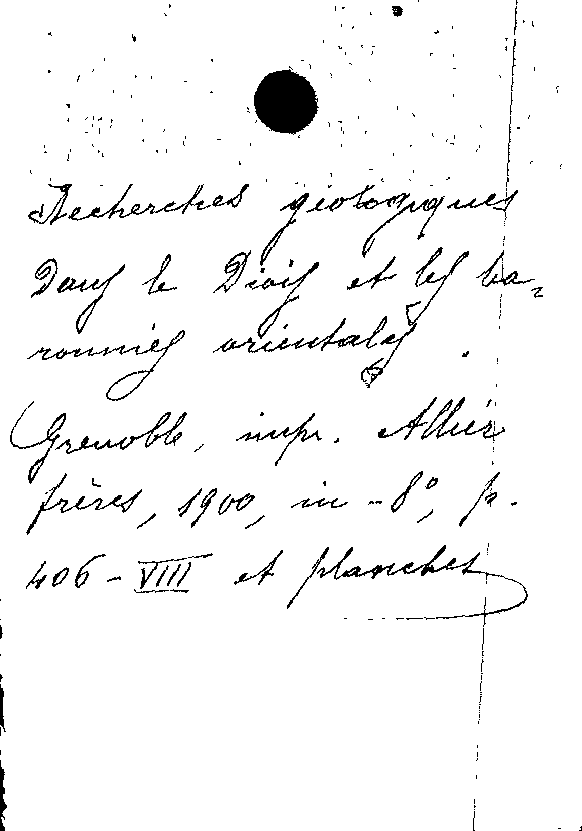 Recherches géologiques
dans le Diois et les ba=
ronnies orientales.
Grenoble, impr. Allier
frères, 1900, in-8°, p.
406-VIII et planches